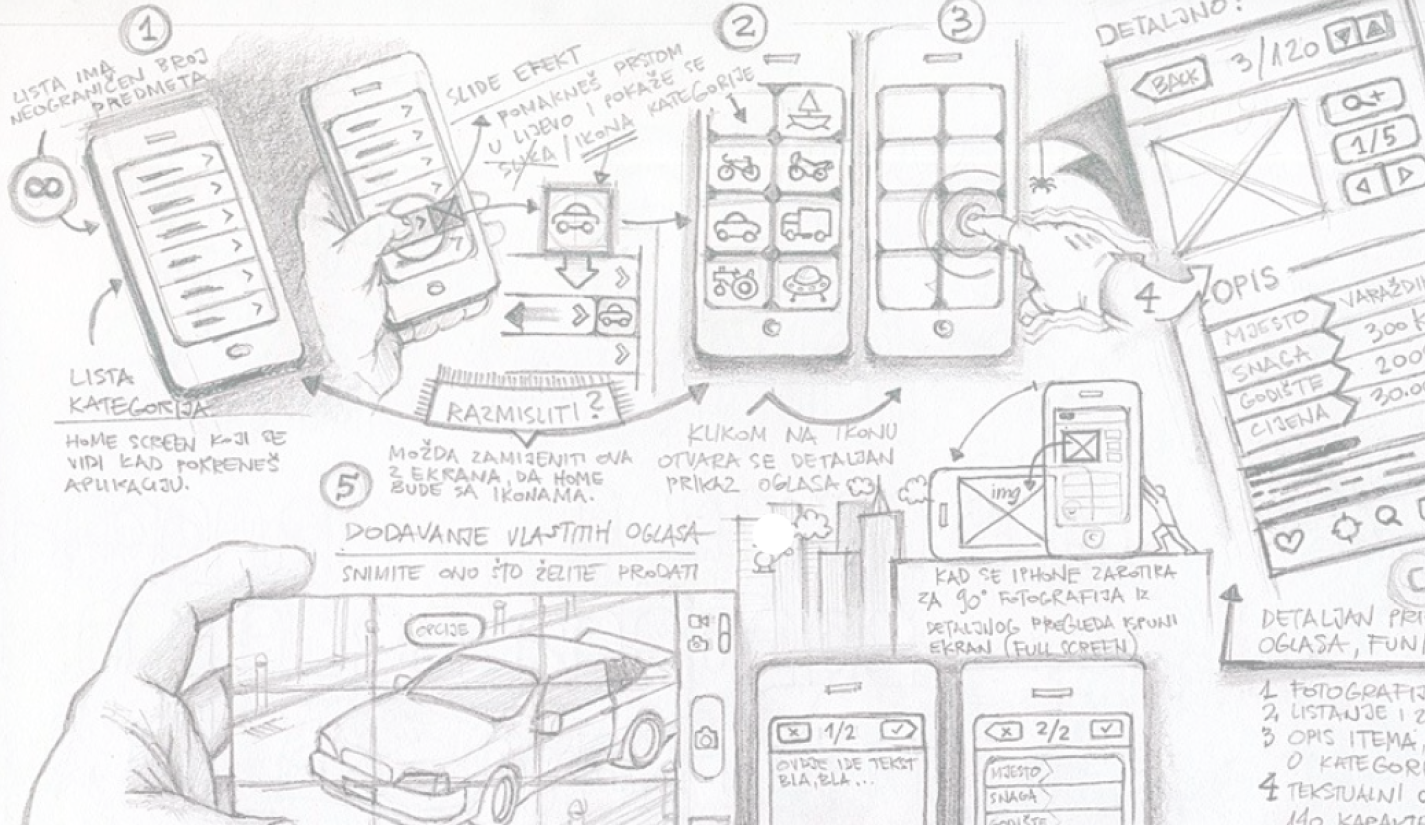 1
LISTA IMA
NEOGRANIČEN BROJ
PREDMETA
∞
LISTA
KATEGORIJA
HOME SCREEN KOJI SE
VIDI KAD POKRENEŠ
APLIKACIJU.
SLIDE EFEKT
POMAKNEŠ PRSTOM
U LIJEVO I POKAŽE SE
SLIKA / IKONA KATEGORIJE
RAZMISLITI?
MOŽDA ZAMIJENITI OVA
2 EKRANA, DA HOME
BUDE SA IKONAMA.
2
3
KLIKOM NA IKONU
OTVARA SE DETALJAN
PRIKAZ OGLASA
DETALJNO:
BACK 3/120
1/5
4
OPIS
MJESTO
SNAGA
GODIŠTE
CIJENA
img
KAD SE IPHONE ZAROTIRA
ZA 90° FOTOGRAFIJA IZ
DETALJNOG PREGLEDA ISPUNI
EKRAN (FULL SCREEN)
DETALJAN
OGLASA,
1
2 LISTANJE I
3 OPIS ITEMA,
O
4 TEKSTUALNI
140
5
DODAVANJE VLASTITIH OGLASA
SNIMITE ONO ŠTO ŽELITE PRODATI
OPCIJE
X 1/2
OVDJE IDE TEKST
BLA, BLA...
X 2/2
MJESTO
SNAGA
GODIŠTE